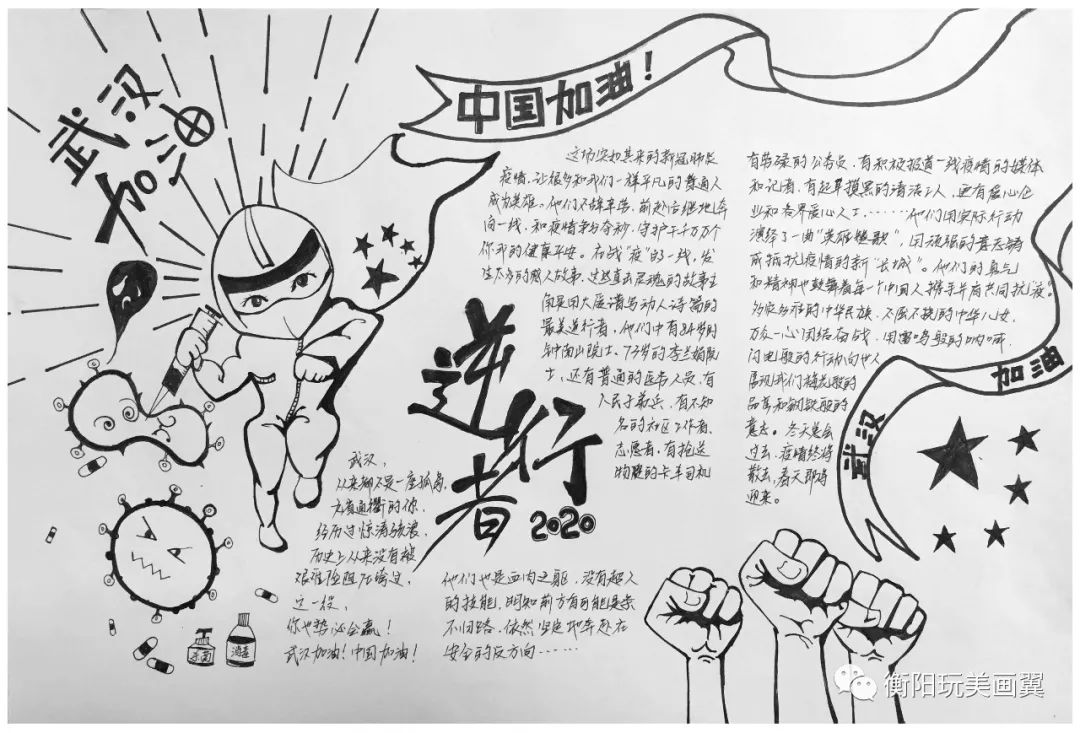 武汉
加油
中国加油！
这场突如其来的新冠肺炎
疫情，让很多和我们一样平凡的普通人
成为英雄。他们不辞辛劳，前赴后继地奔
向一线，和疫情争分夺秒，守护了千万万个
你我的健康平安。在战"疫"的一线，发
生太多的感人故事，这些直击灵魂的故事主
角是用大爱谱写动人诗篇的
最美逆行者，他们中有84岁的
钟南山院士、73岁的李兰娟院
士，还有普通的医务人员，有
人民子弟兵，有不知
名的社区工作者、
志愿者，有抢送
物资的卡车司机
有劳碌的公务员，有积极报道一线疫情的媒体
和记者，有起早摸黑的清洁工人，更有爱心企
业和各界爱心人士，……他们用实际行动
演绎了一曲"英雄赞歌"，用顽强的意志铸
成抵抗疫情的新"长城"。他们的勇气
和精神也鼓舞着每一个中国人携手并肩共同抗疫。
多灾多难的中华民族，不屈不挠的中华儿女，
万众一心团结奋战，用雷鸣般的呐喊，
闪电般的行动向世人
展现我们梅花般的
品喜和钢铁般的
意志。冬天总会
过去，疫情终将
散去，春天即将
迎来。
逆行者
2020
武汉
加油
武汉，
从来都不是一座孤岛，
九省通衢的你，
经历过惊涛骇浪，
历史上从来没有被
艰难险阻压垮过，
这一役，
你也势必会赢！
武汉加油！中国加油！
他们也是血肉之躯，没有超人
的技能，明知前方有可能是条
不归路，依然坚定地奔赴在
安全的反方向……
杀菌
消毒
衡阳玩美画翼